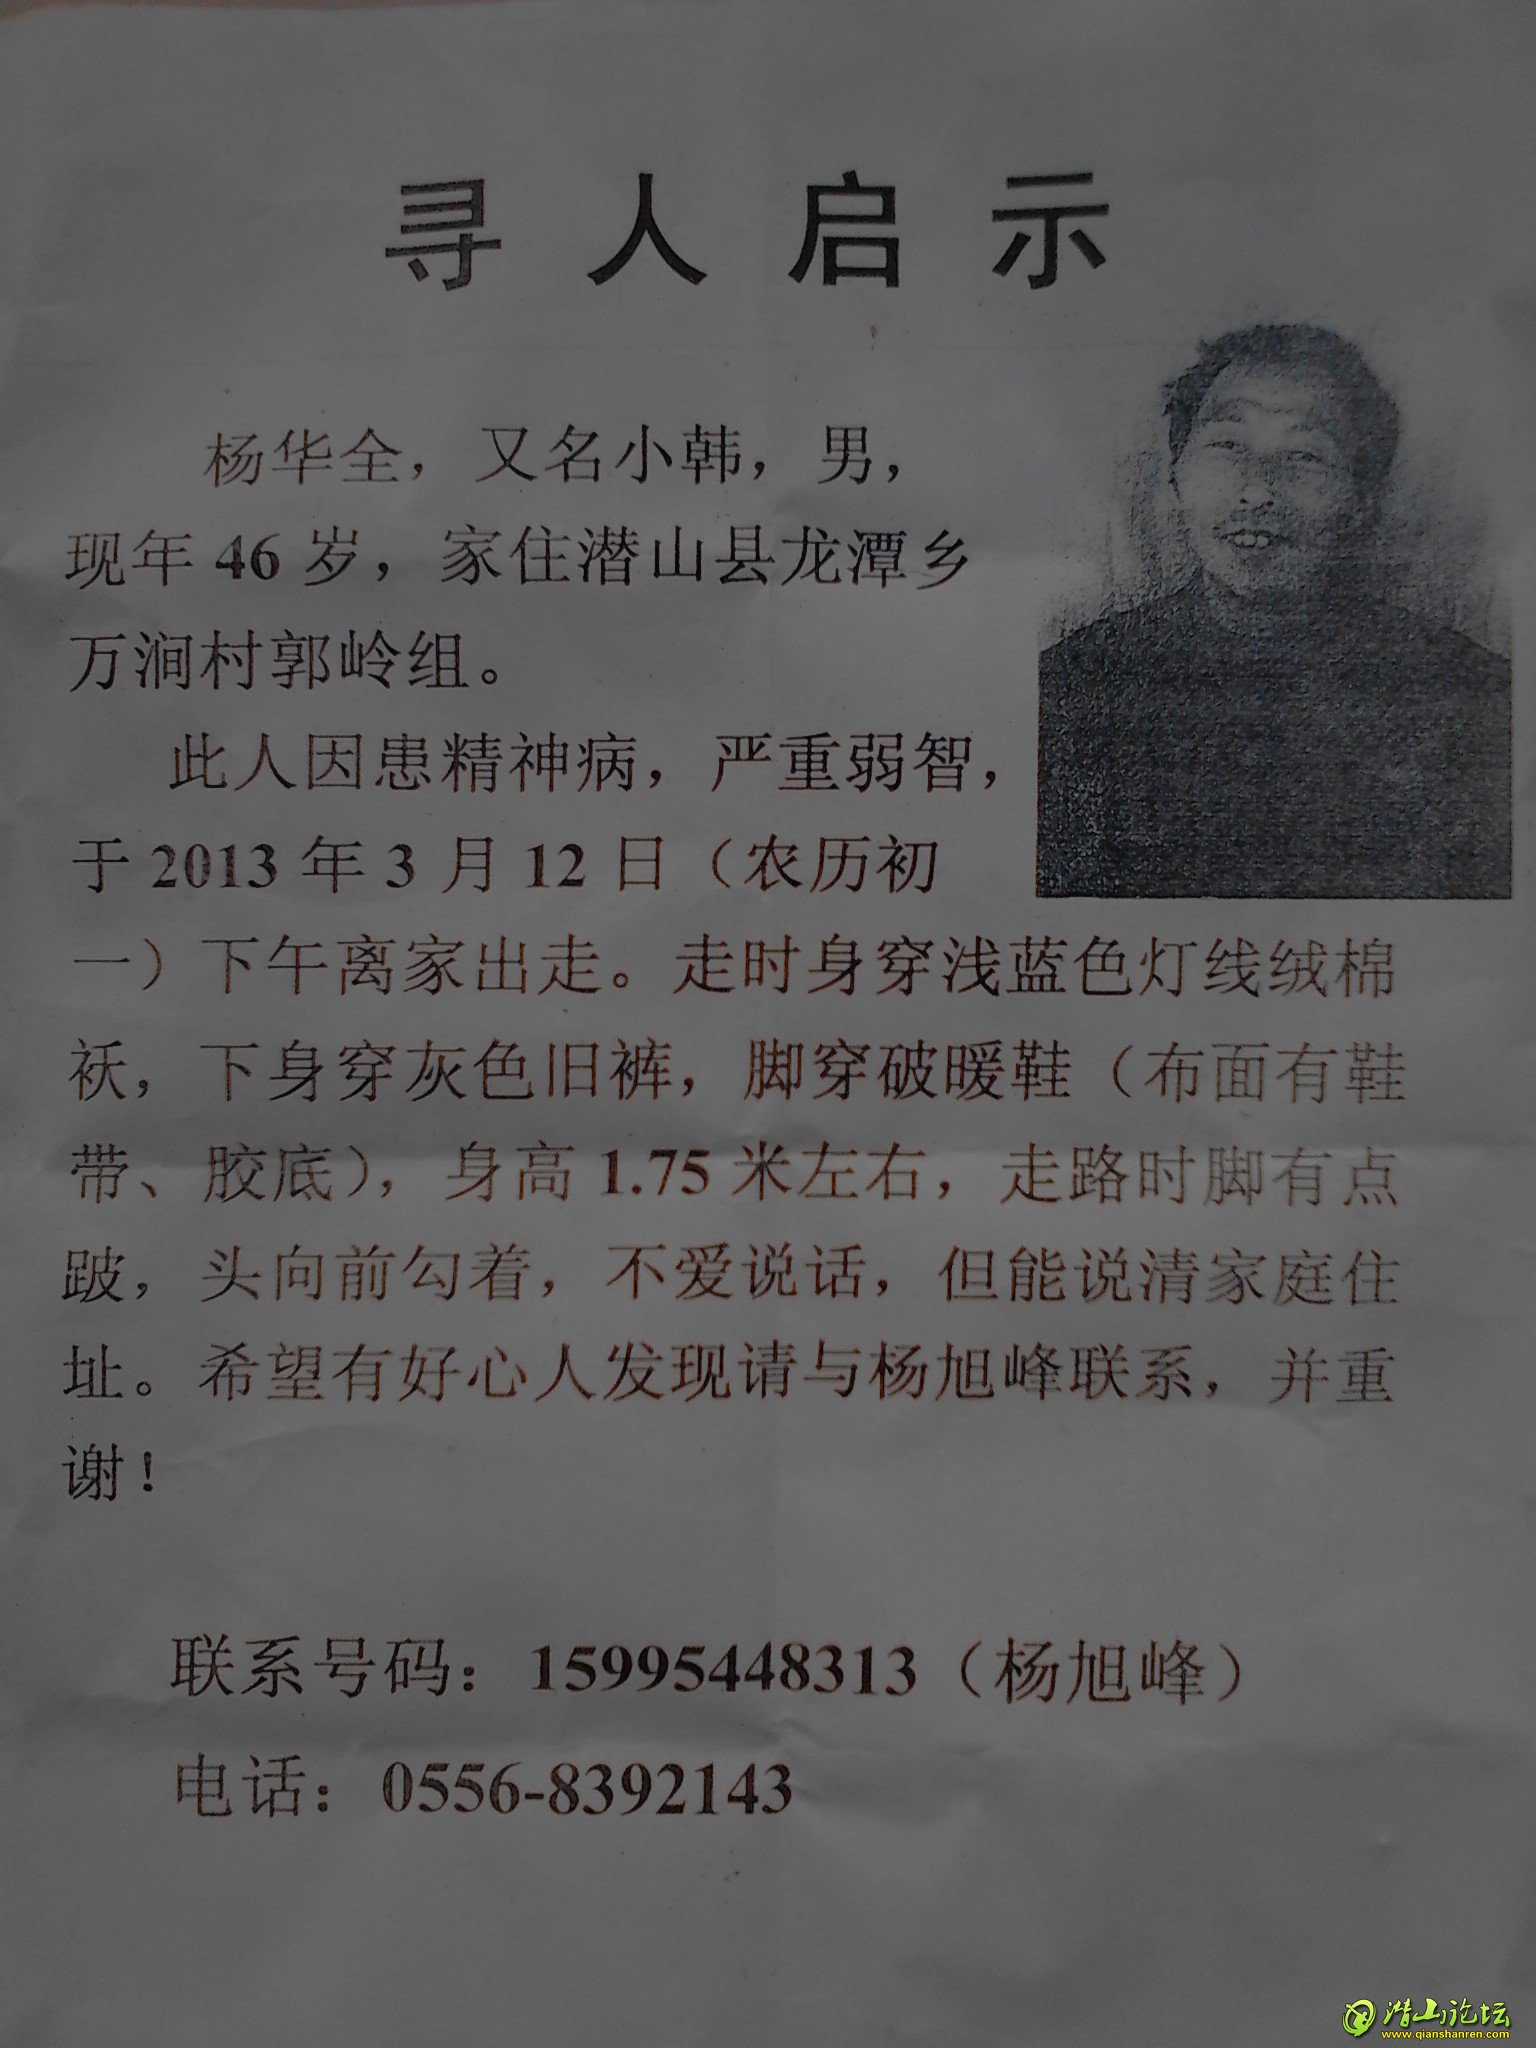 寻人启示
杨华全，又名小韩，男，
现年 46 岁，家住潜山县龙潭乡
万涧村郭岭组。
此人因患精神病，严重弱智，
于 2013 年 3 月 12 日（农历初
一）下午离家出走。走时身穿浅蓝色灯线绒棉
袄，下身穿灰色旧裤，脚穿破暖鞋（布面有鞋
带、胶底），身高 1.75 米左右，走路时脚有点
跛，头向前勾着，不爱说话，但能说清家庭住
址。希望有好心人发现请与杨旭峰联系，并重
谢！
联系号码：15995448313（杨旭峰）
电话：0556-8392143
潜山论坛
www.qianshanren.com